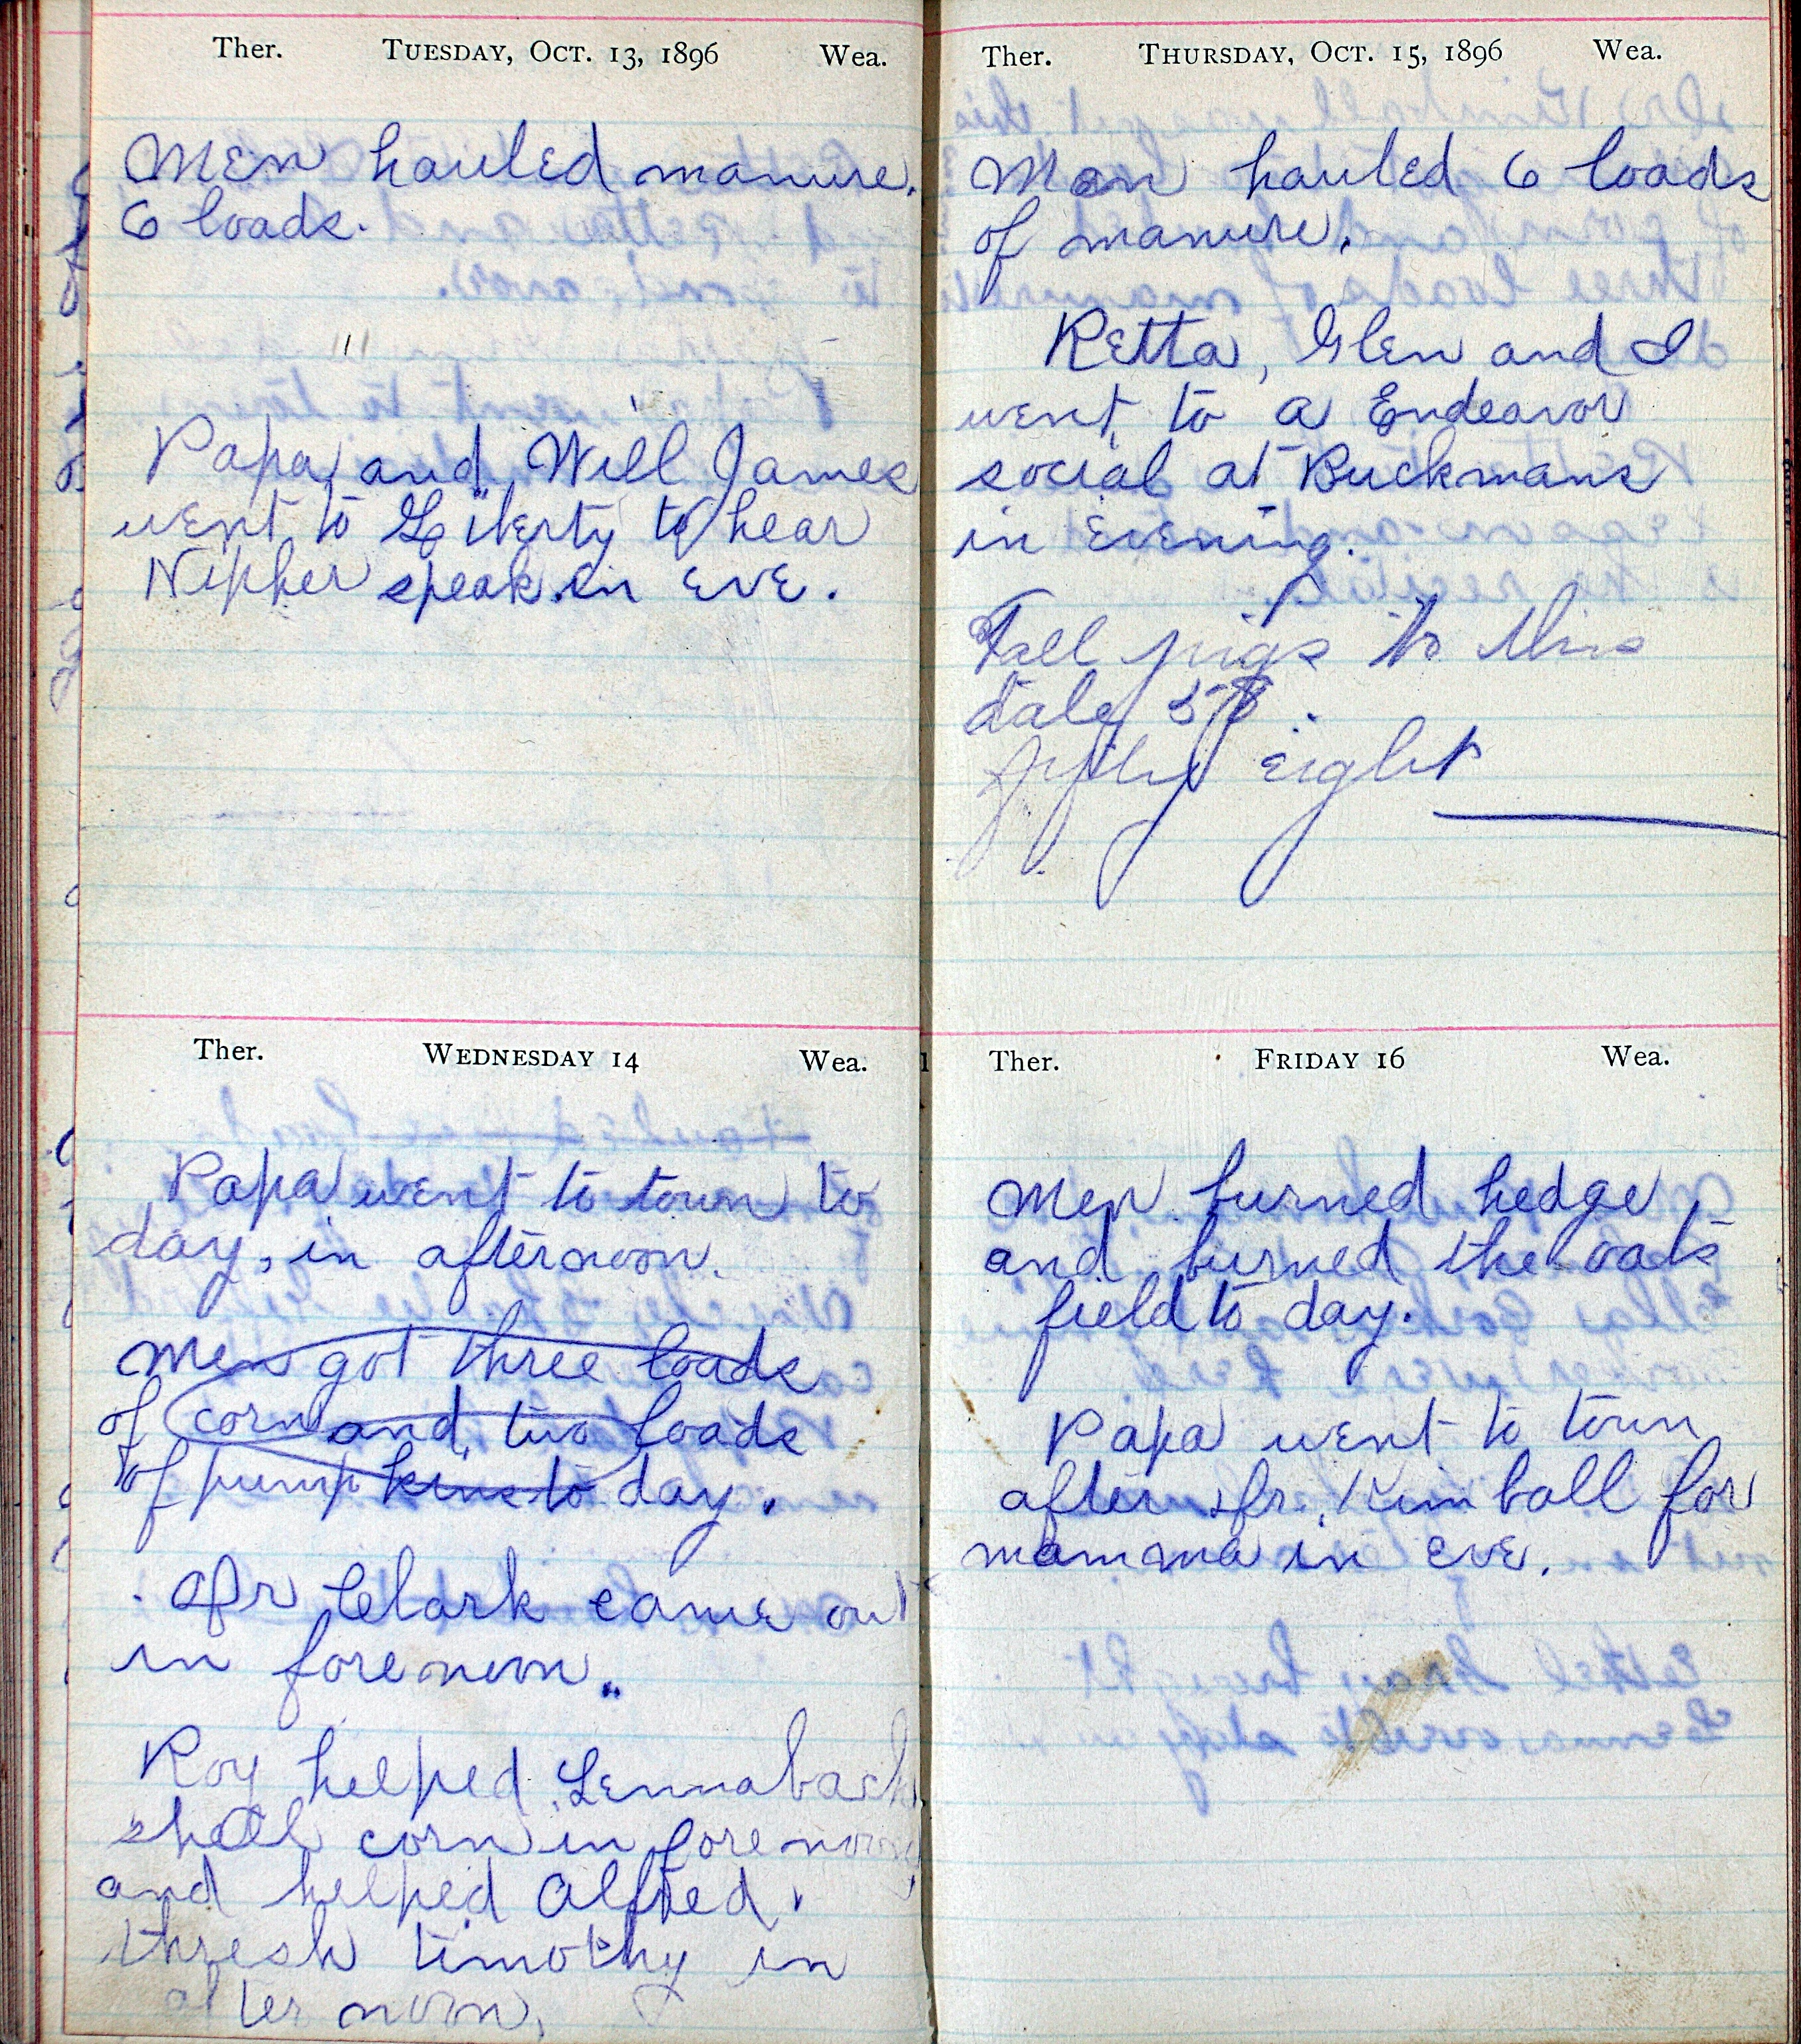 Ther. Tuesday, Oct. 13, 1896 Wea.
Men hauled manure.
6 loads.
Papa and Will James
went to Liberty to hear
Nipher speak in eve.
Ther. Wednesday 14 Wea.
Papa went to town to
day, in afternoon.
Men got three loads
of corn and two loads
of pumpkins to day.
Dr Clark came out
in forenoon.
Roy helped Lennaback
shell corn in forenoon
and helped Alfred
thresh timothy in
after noon.
Ther. Thursday, Oct. 15, 1896 Wea.
Men hauled 6 loads
of manure.
Retta, Glen and I
went to a Endeavor
social at Buckmans
in evening.
Fall pigs to this
date 58.
fifty eight
Ther. Friday 16 Wea.
Men burned hedge
and burned the oats
field to day.
Papa went to town
after Dr. Kimball for
mamma in eve.